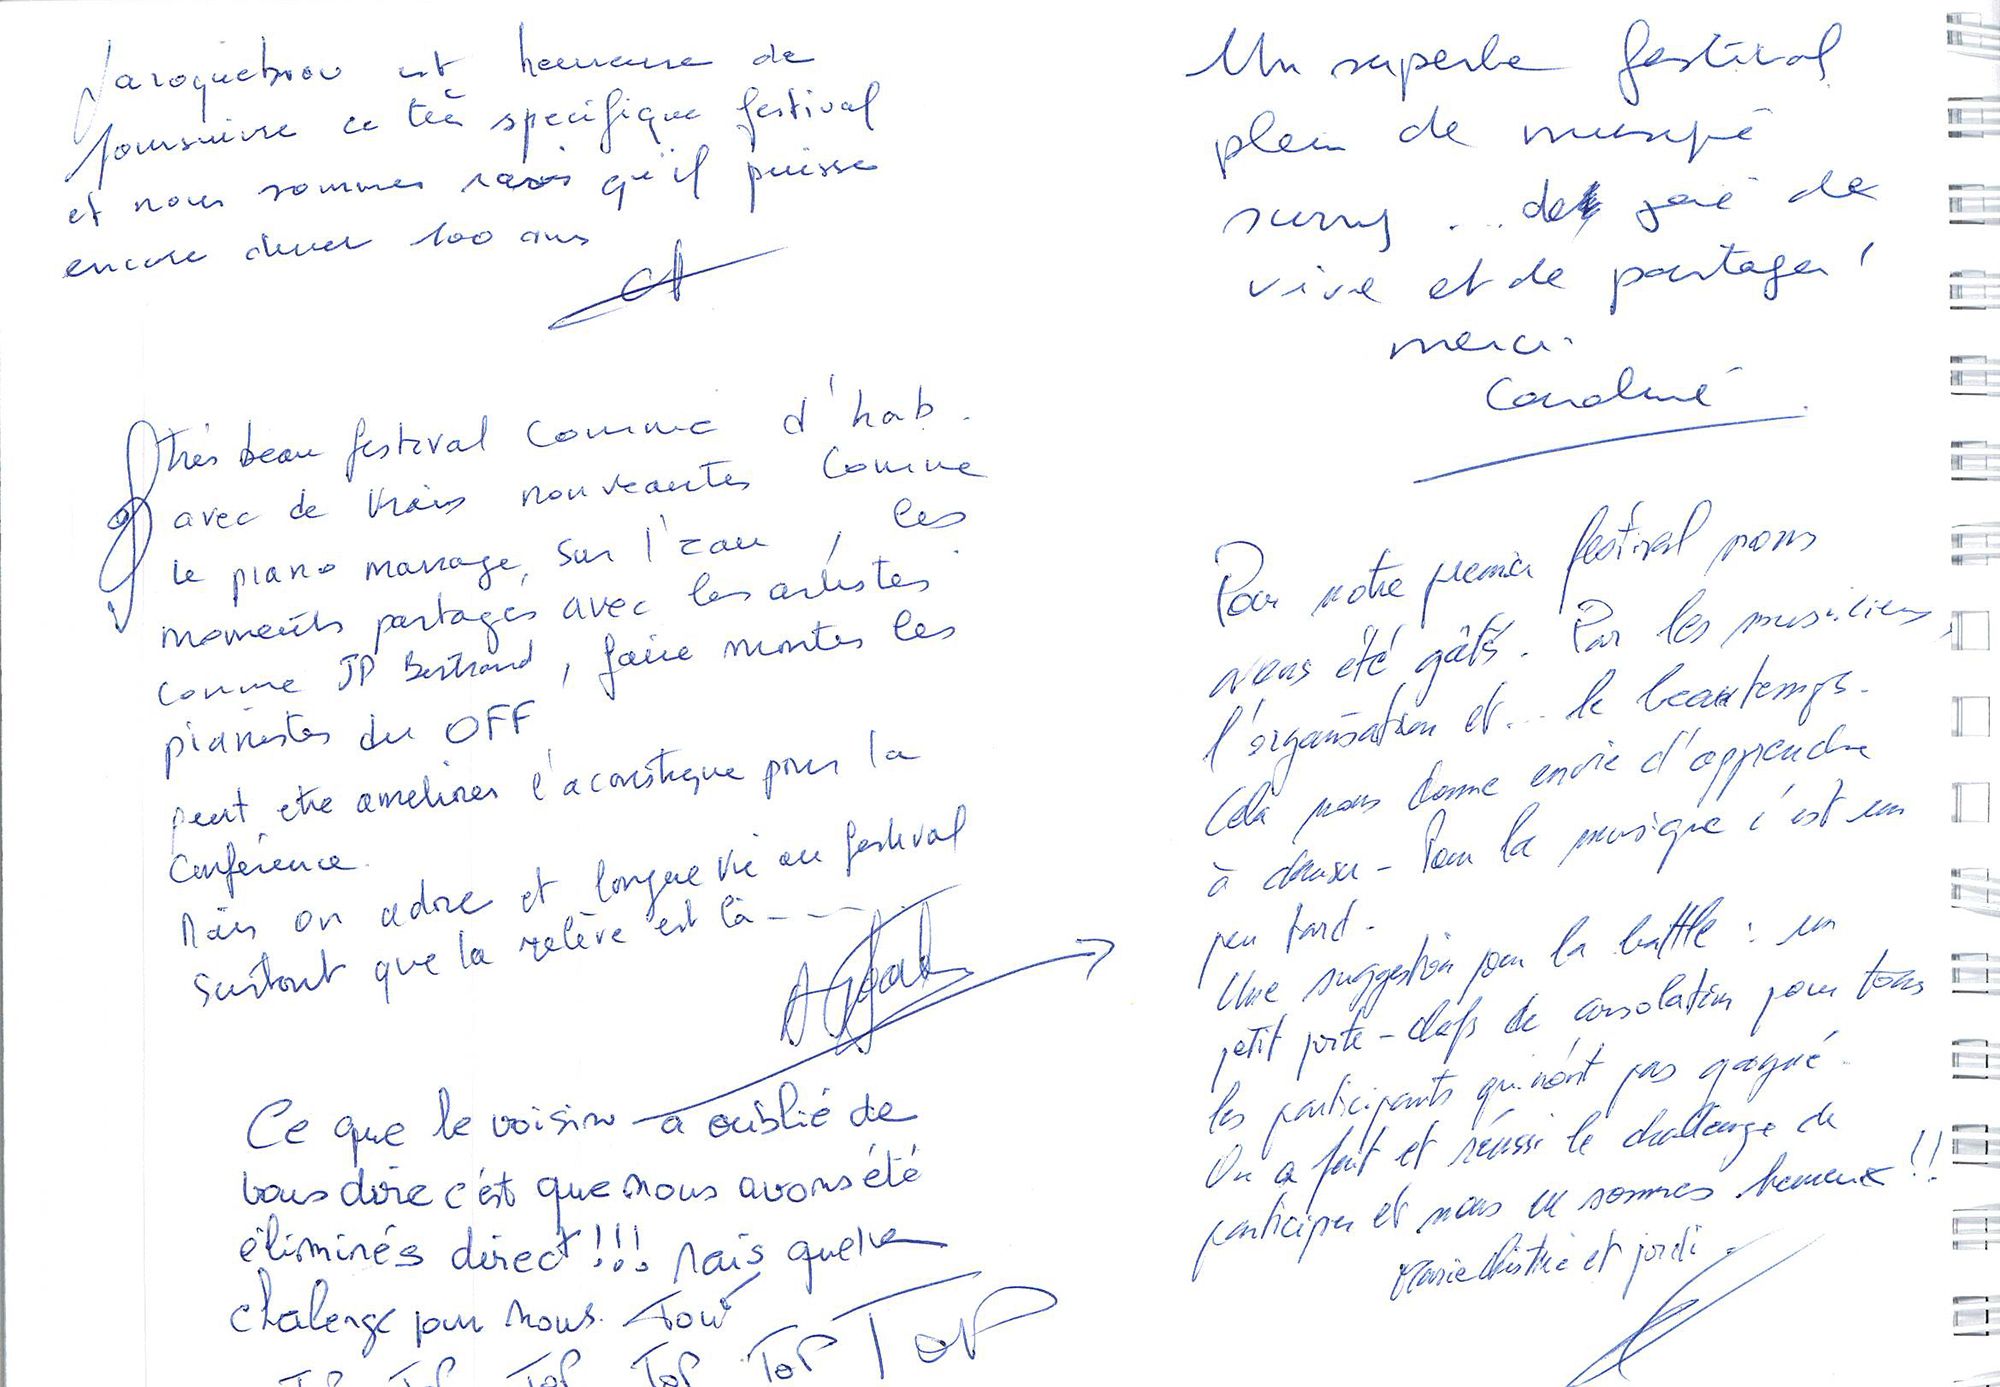 Laroquebrou est heureuse de
poursuivre ce très spécifique festival
et nous sommes ravis qu'il puisse
encore durer 100 ans
très beau festival comme d'hab.
avec de vrais nouveautés comme
le piano manage, sur l'eau, les
moments partagés avec les artistes
comme JP Bertrand, faire monter les
pianistes du OFF
peut etre améliorer l'acoustique pour la
Conférence.
Mais on adore et longue vie au festival
surtout que la relève est là - - -
Ce que le voisin a oublié de
vous dire c'est que nous avons été
éliminés direct !!! Mais quelle
chalenge pour nous. Tout
TOP TOP TOP TOP TOP TOP
Un superbe festival
plein de musique
swing ... de joie de
vivre et de partager !
merci.
Caroline
Pour notre premier festival nous
avons été gâtés. Par les musiciens,
l'organisation et... le beau temps.
Cela nous donne envie d'apprendre
à danser - Pour la musique c'est un
peu tard.
Une suggestion pour la battle : un
petit porte-clefs de consolation pour tous
les participants qui n'ont pas gagné.
On a fait et réussi le challenge de
participer et nous en sommes heureux !!
Marie Christine et Jordi